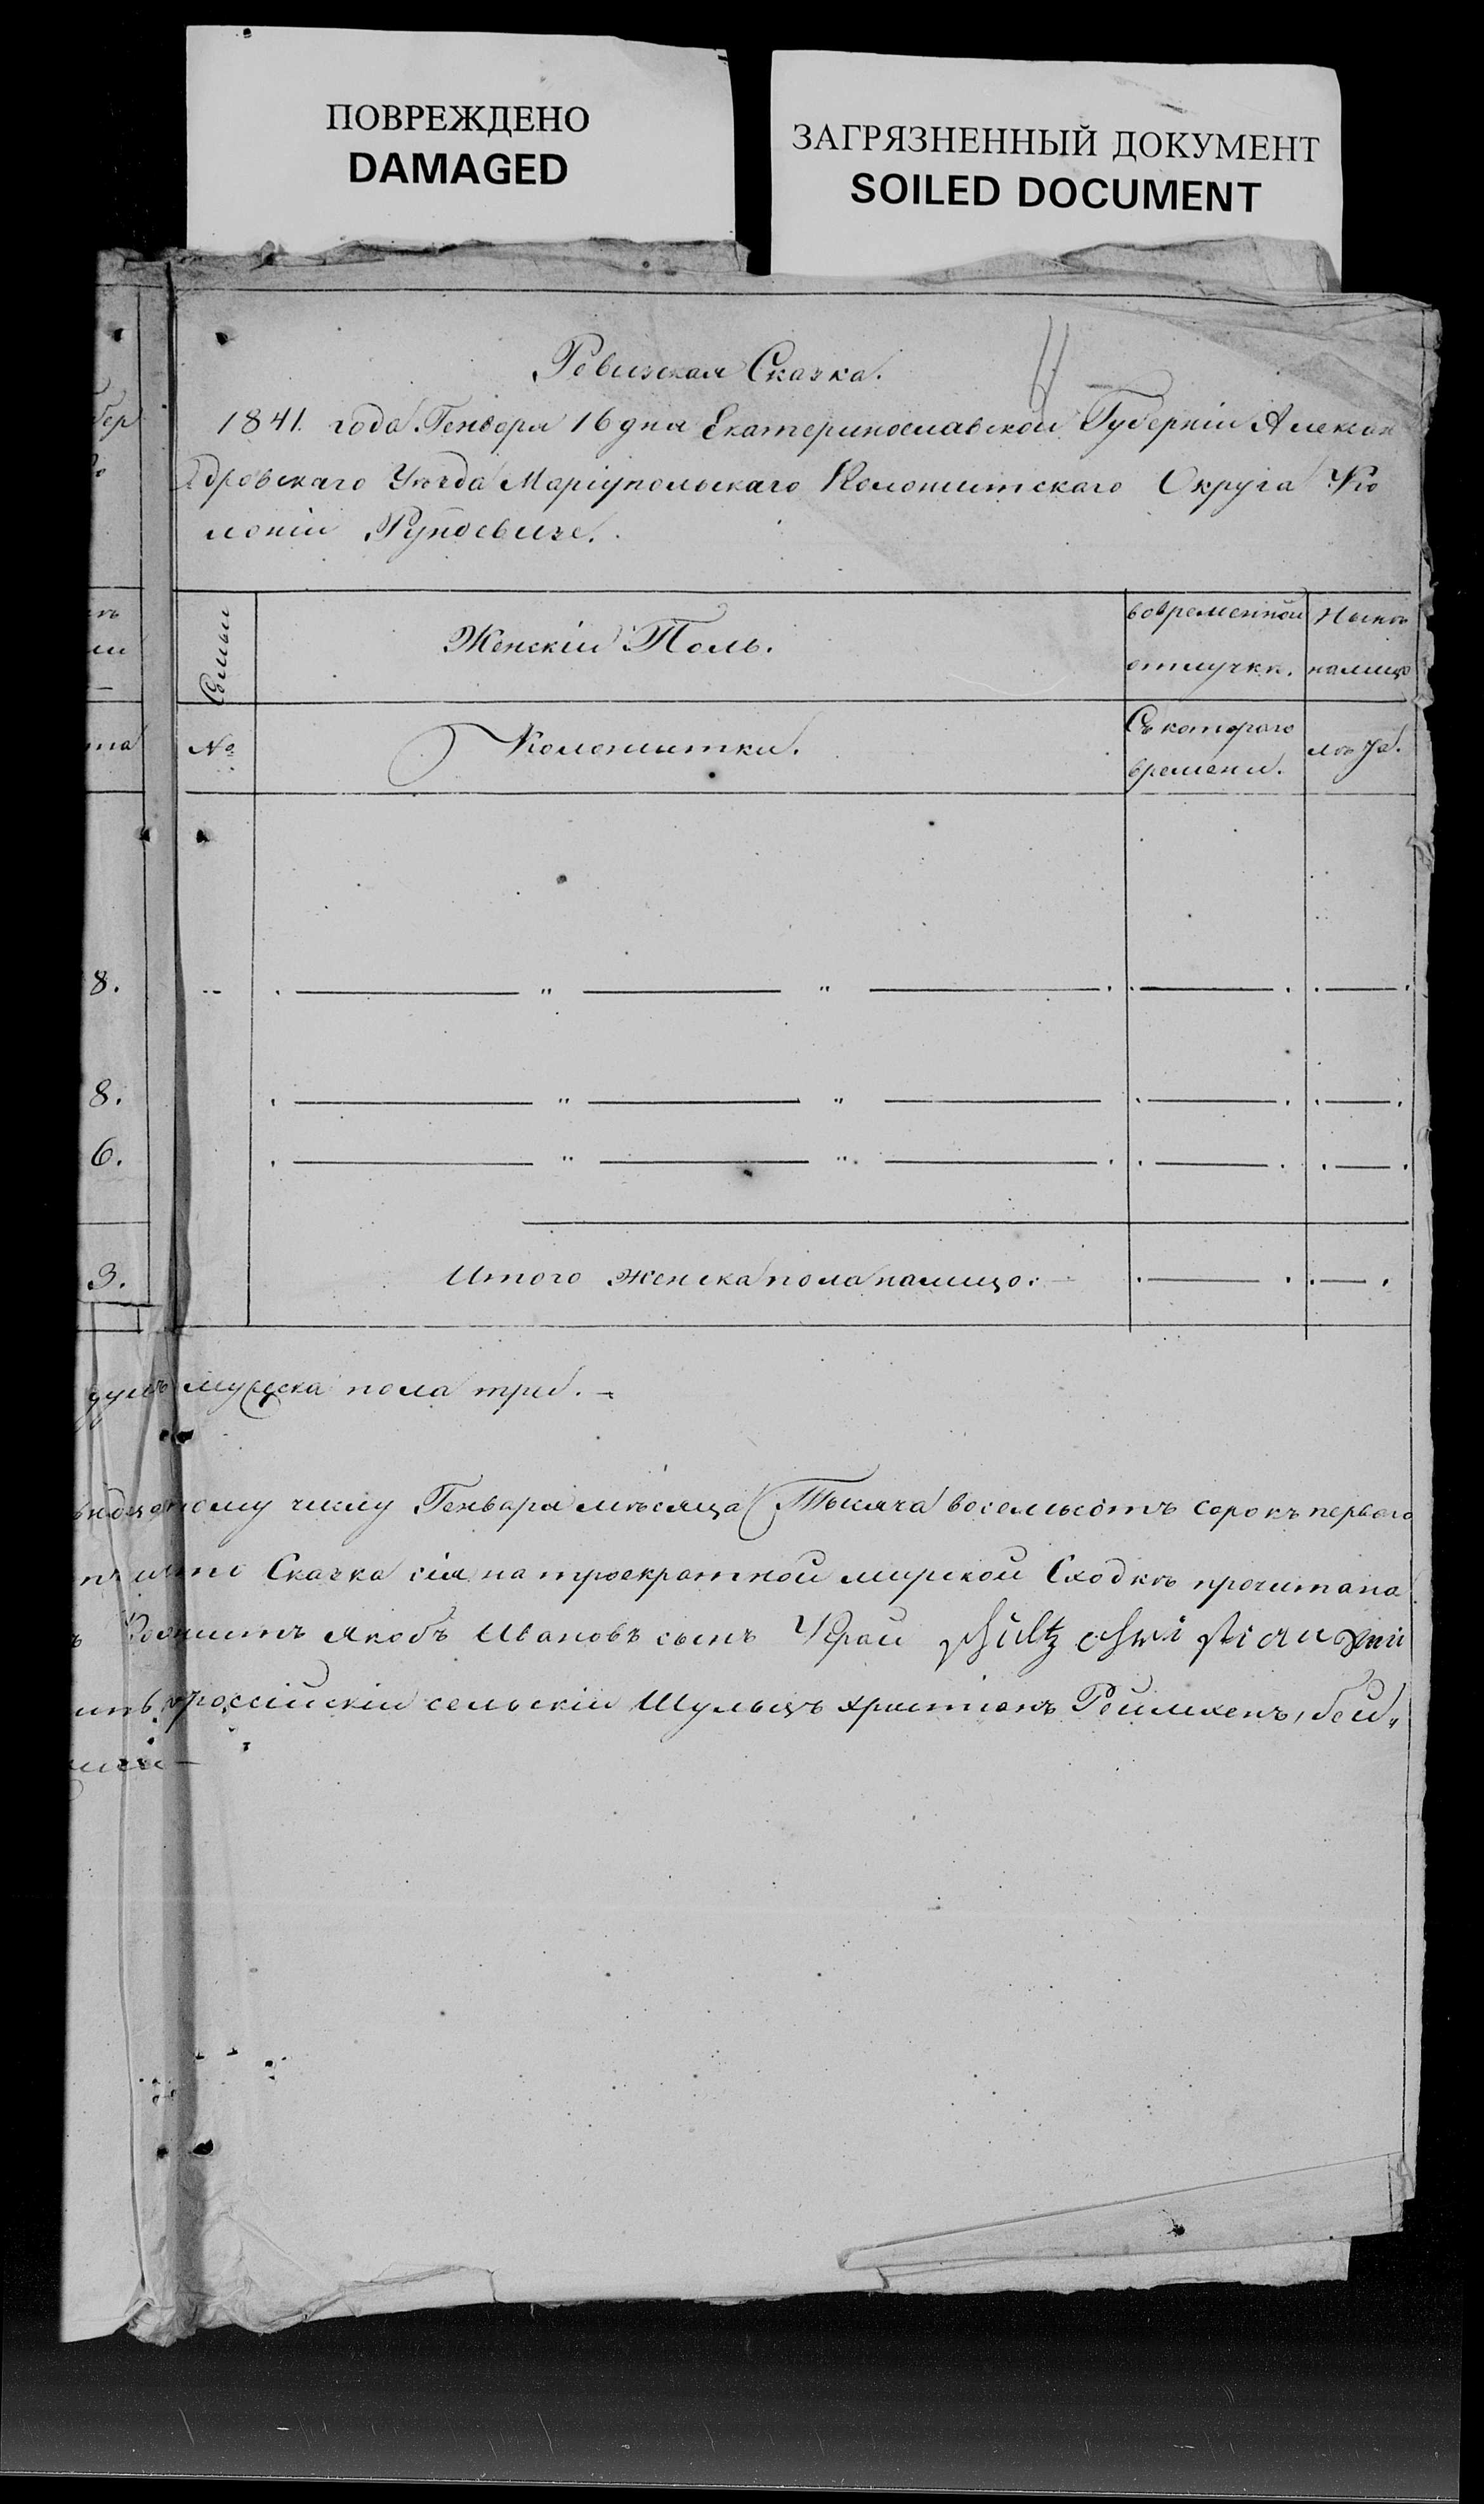 ПОВРЕЖДЕНО
DAMAGED
ЗАГРЯЗНЕННЫЙ ДОКУМЕНТ
SOILED DOCUMENT
Ревизская Сказка.
1841. года Генворя 16 дня Екатеринославской Губерніи Алексан
дровскаго Уѣзда Маріупольскаго Колонитскаго Округа Ко
лоніи
Семьи
Женскій Полъ.
вовременной
отлучкѣ.
Нынѣ
налицо
№
Колонитки.
Съ котораго
времени.
лѣта.
8.
8.
6.
Итого женска пола налицо:
3.
душъ мужеска пола три.
числу Генваря мѣсяца Тысяча восемьсотъ сорокъ перваго
Сказка сія на троекратной мирской Сходкѣ прочитана
Якобъ Ивановъ сынъ schültz
сельскій Шульцъ Христіянъ бей